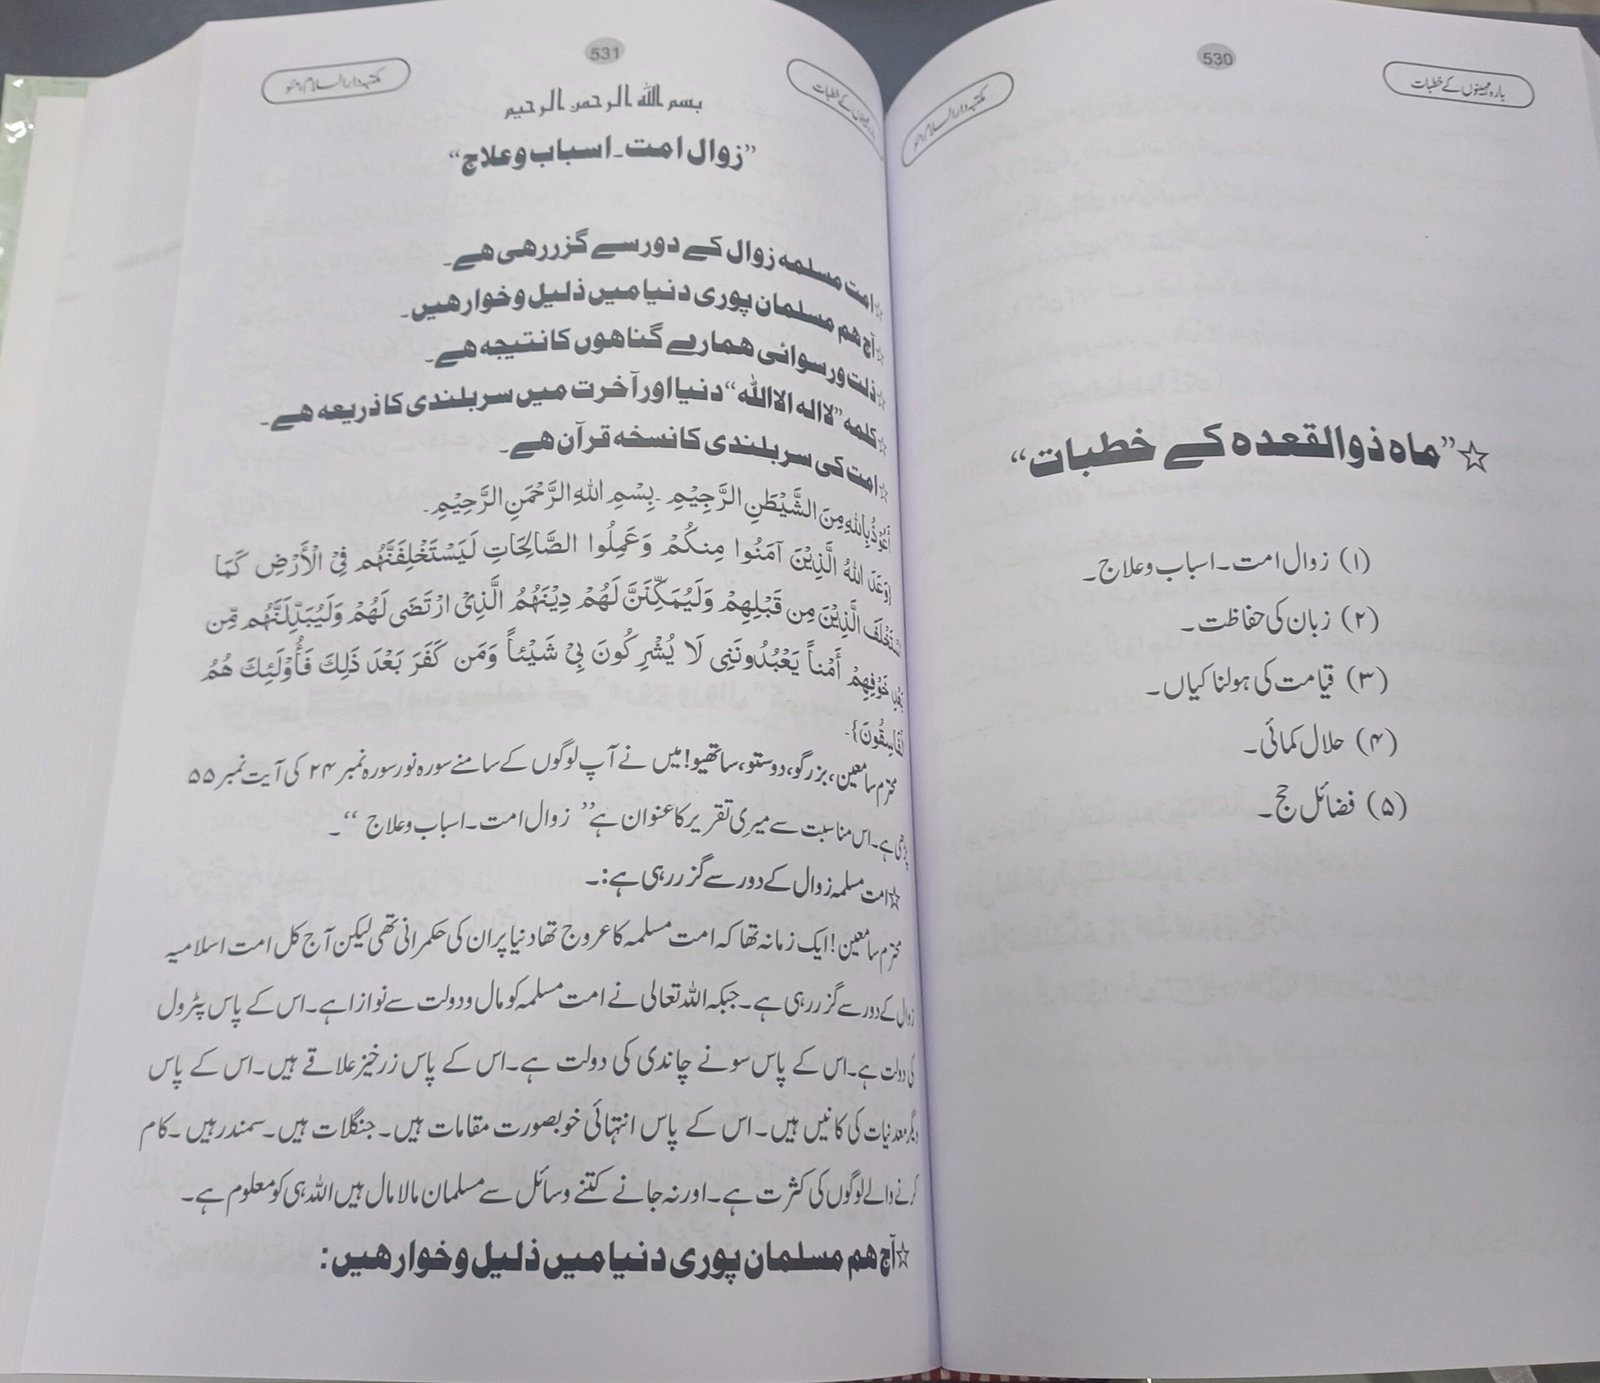 530
بارہ مہینوں کے خطبات
مکتبہ دارالسلام،مئو
☆”ماہ ذوالقعدہ کے خطبات“
(۱) زوال امت۔اسباب وعلاج۔
(۲) زبان کی حفاظت۔
(۳) قیامت کی ہولناکیاں۔
(۴) حلال کمائی۔
(۵) فضائل حج۔
531
بارہ مہینوں کے خطبات
مکتبہ دارالسلام،مئو
بسم اللہ الرحمن الرحیم
”زوال امت۔اسباب وعلاج“
☆امت مسلمہ زوال کے دورسے گزررهی هے۔
☆آج هم مسلمان پوری دنیا میں ذلیل وخوار هیں۔
☆ذلت ورسوائی همارے گناهوں کانتیجه هے۔
☆کلمه”لااله الاالله“دنیااورآخرت میں سربلندی کاذریعه هے۔
☆امت کی سربلندی کانسخه قرآن هے۔
أَعُوْذُبِاللهِ مِنَ الشَّيْطٰنِ الرَّجِيْمِ ۔بِسْمِ اللهِ الرَّحْمَنِ الرَّحِيْمِ۔
{وَعَدَ اللهُ الَّذِيْنَ آمَنُوا مِنكُمْ وَعَمِلُوا الصَّالِحَاتِ لَيَسْتَخْلِفَنَّهُم فِيْ الْأَرْضِ كَمَا
اسْتَخْلَفَ الَّذِيْنَ مِن قَبْلِهِمْ وَلَيُمَكِّنَنَّ لَهُمْ دِيْنَهُمُ الَّذِيْ ارْتَضَى لَهُمْ وَلَيُبَدِّلَنَّهُم مِّن
بَعْدِ خَوْفِهِمْ أَمْناً يَعْبُدُونَنِى لَا يُشْرِكُونَ بِيْ شَيْئاً وَمَن كَفَرَ بَعْدَ ذَلِكَ فَأُوْلَئِكَ هُمُ
الْفَاسِقُونَ}۔
محترم سامعین،بزرگو،دوستو،ساتھیو!میں نے آپ لوگوں کے سامنے سورہ نورسورہ نمبر ۲۴ کی آیت نمبر ۵۵
پڑھی ہے۔اس مناسبت سے میری تقریر کا عنوان ہے” زوال امت۔اسباب وعلاج “۔
☆امت مسلمہ زوال کے دور سے گزر رہی ہے:۔
محترم سامعین!ایک زمانہ تھا کہ امت مسلمہ کا عروج تھا دنیا پر ان کی حکمرانی تھی لیکن آج کل امت اسلامیہ
زوال کے دور سے گزر رہی ہے۔جبکہ اللہ تعالی نے امت مسلمہ کو مال ودولت سے نوازا ہے۔اس کے پاس پٹرول
کی دولت ہے۔اس کے پاس سونے چاندی کی دولت ہے۔اس کے پاس زرخیز علاقے ہیں۔اس کے پاس
دیگر معدنیات کی کانیں ہیں۔اس کے پاس انتہائی خوبصورت مقامات ہیں۔جنگلات ہیں۔سمندر ہیں۔کام
کرنے والے لوگوں کی کثرت ہے۔اور نہ جانے کتنے وسائل سے مسلمان مالا مال ہیں اللہ ہی کو معلوم ہے۔
☆آج هم مسلمان پوری دنیا میں ذلیل وخوار هیں: